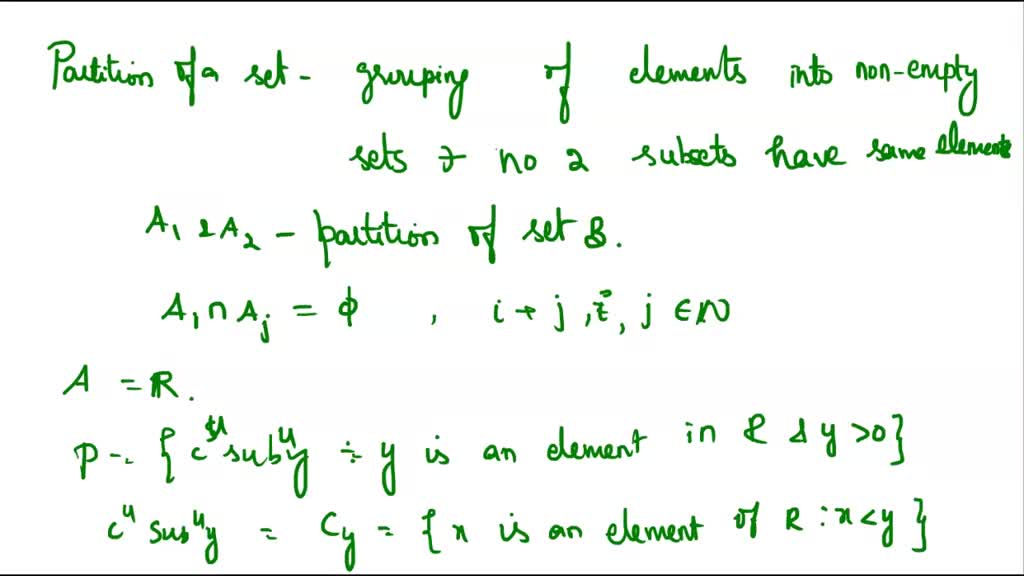 Partition of a set - grouping of elements into non-empty
sets & no 2 subsets have same elements
A₁ & A₂ - partition of set B.
A₁ ∩ Aⱼ = ϕ , i ≠ j , i, j ∈ N
A = R.
P = { c "sub" y ÷ y is an element in R & y >0}
c " sub " y = Cy = { x is an element of R : x < y }